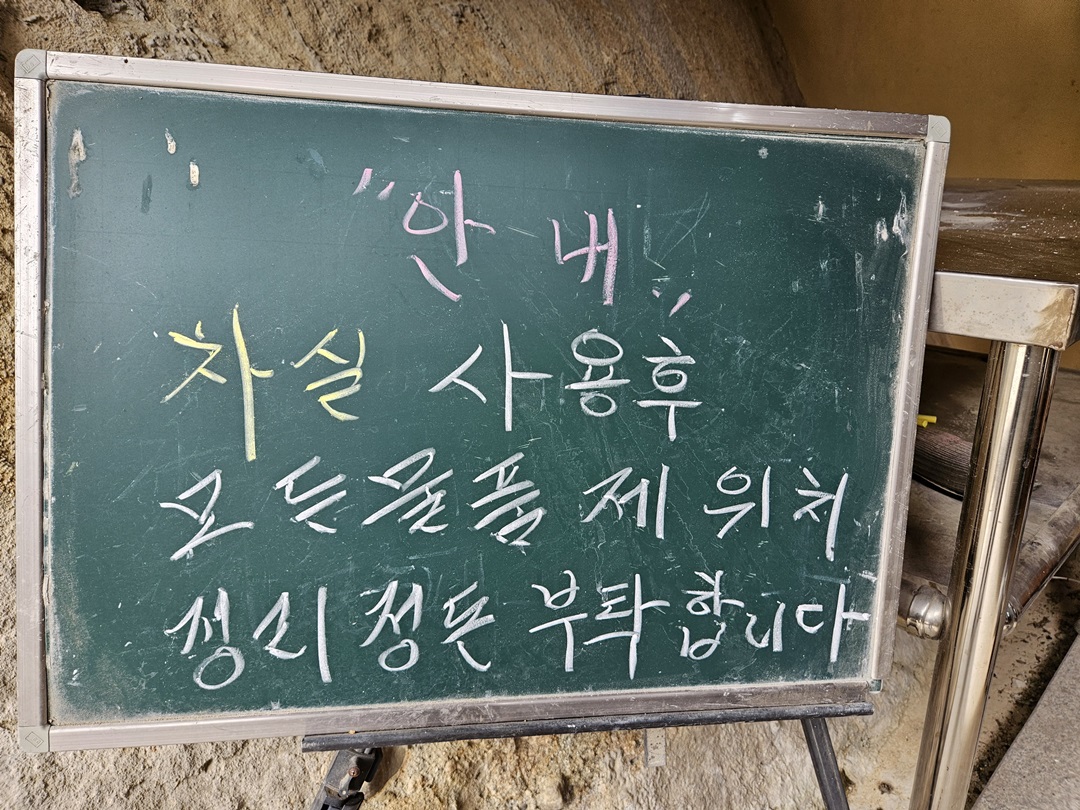 "안 내"
차실 사용후
모든물품 제 위치
정시정돈 부탁합니다